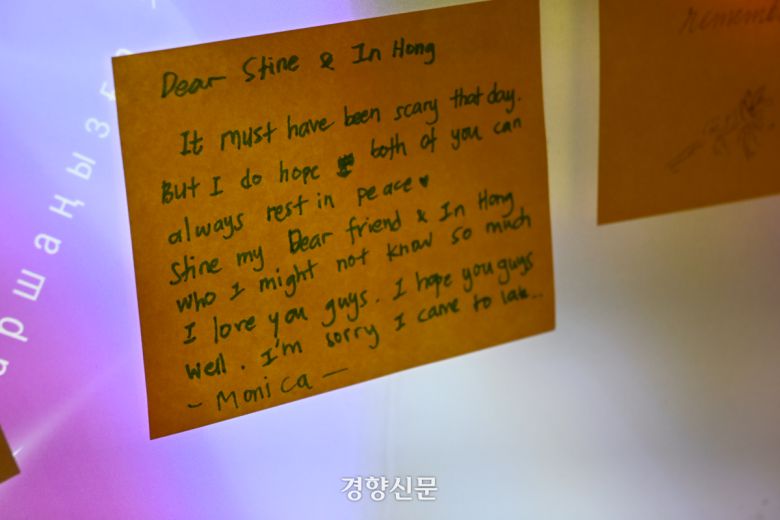 Dear Stine & In Hong
It must have been scary that day.
But I do hope both of you can
always rest in peace ♥
Stine my Dear friend & In Hong
who I might not know so much
I love you guys. I hope you guys
well. I'm sorry I came to late...
~ Monica —
Remem
аршаңыз
경향신문